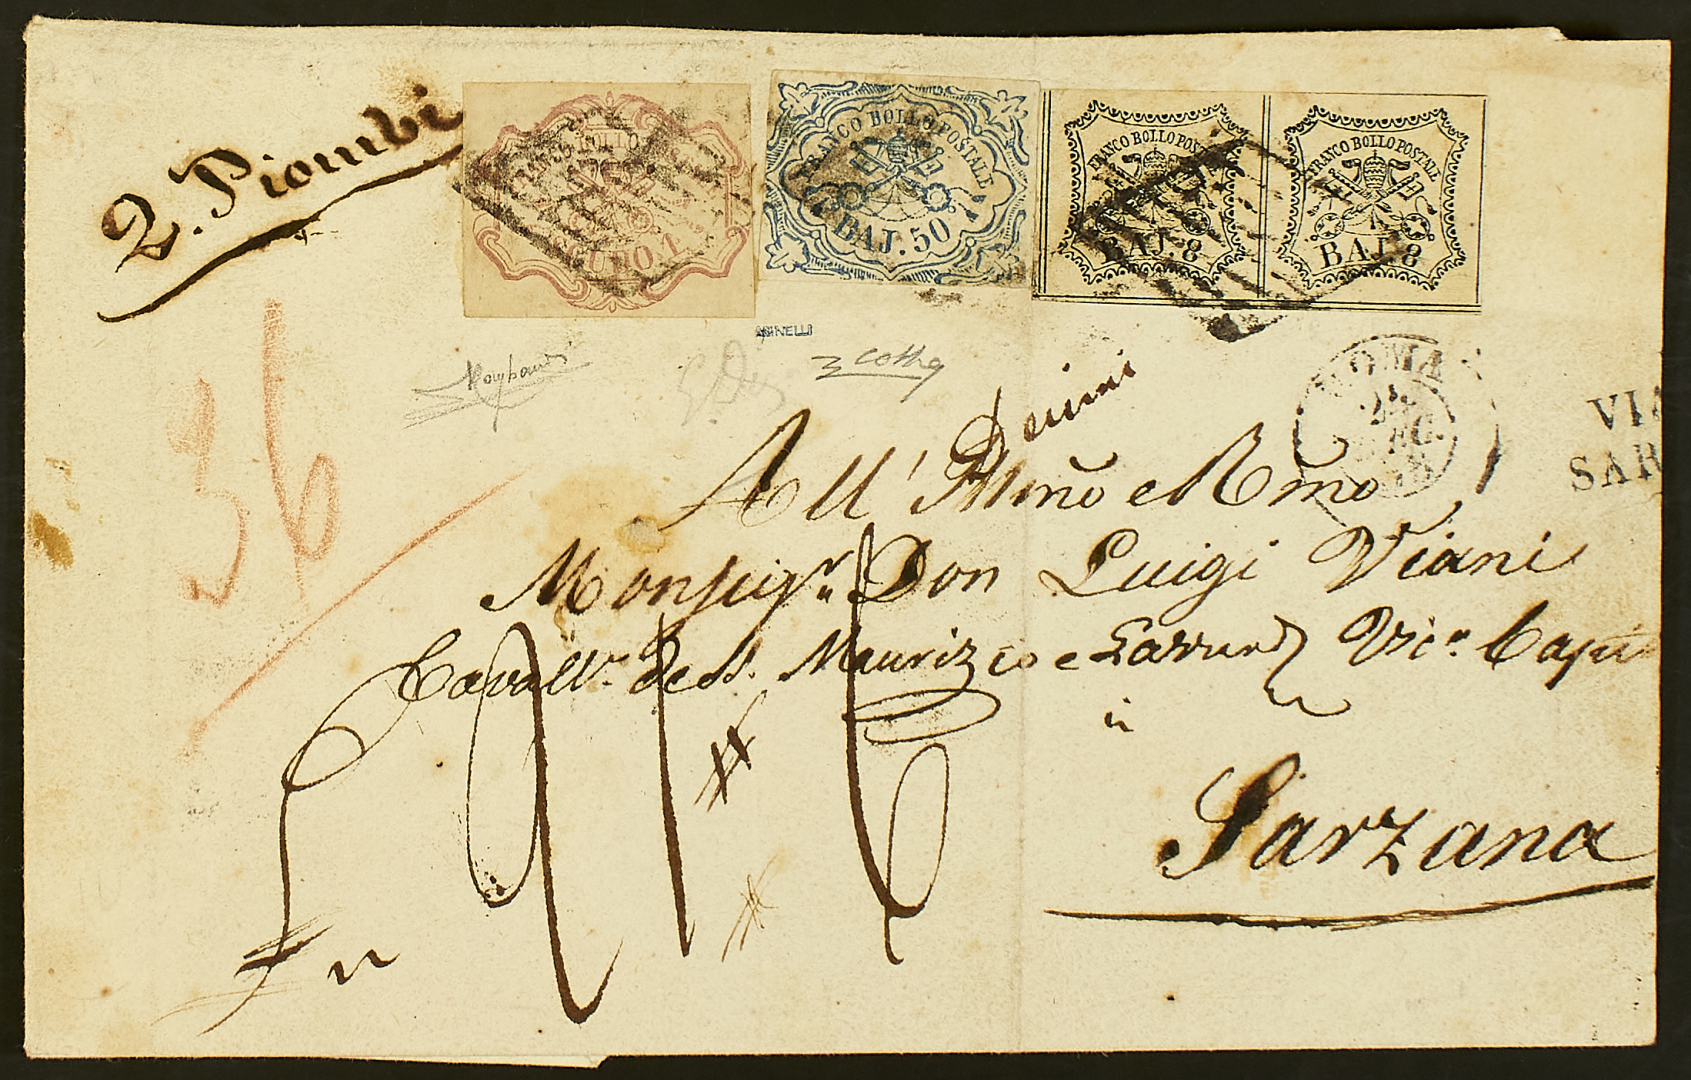 2. Piombi
FRANCO BOLLO
SCUDO. 1
FRANCO BOLLO POSTALE
BAJ. 50
FRANCO BOLLO POSTALE
BAJ. 8
FRANCO BOLLO POSTALE
BAJ. 8
ROMA
VIA
SAR
36
Decimi
All' Illmo e Rmo
Monsigr Don Luigi Viani
Cavall.e de SS. Maurizio e Lazzaro Vic.o
a
Sarzana